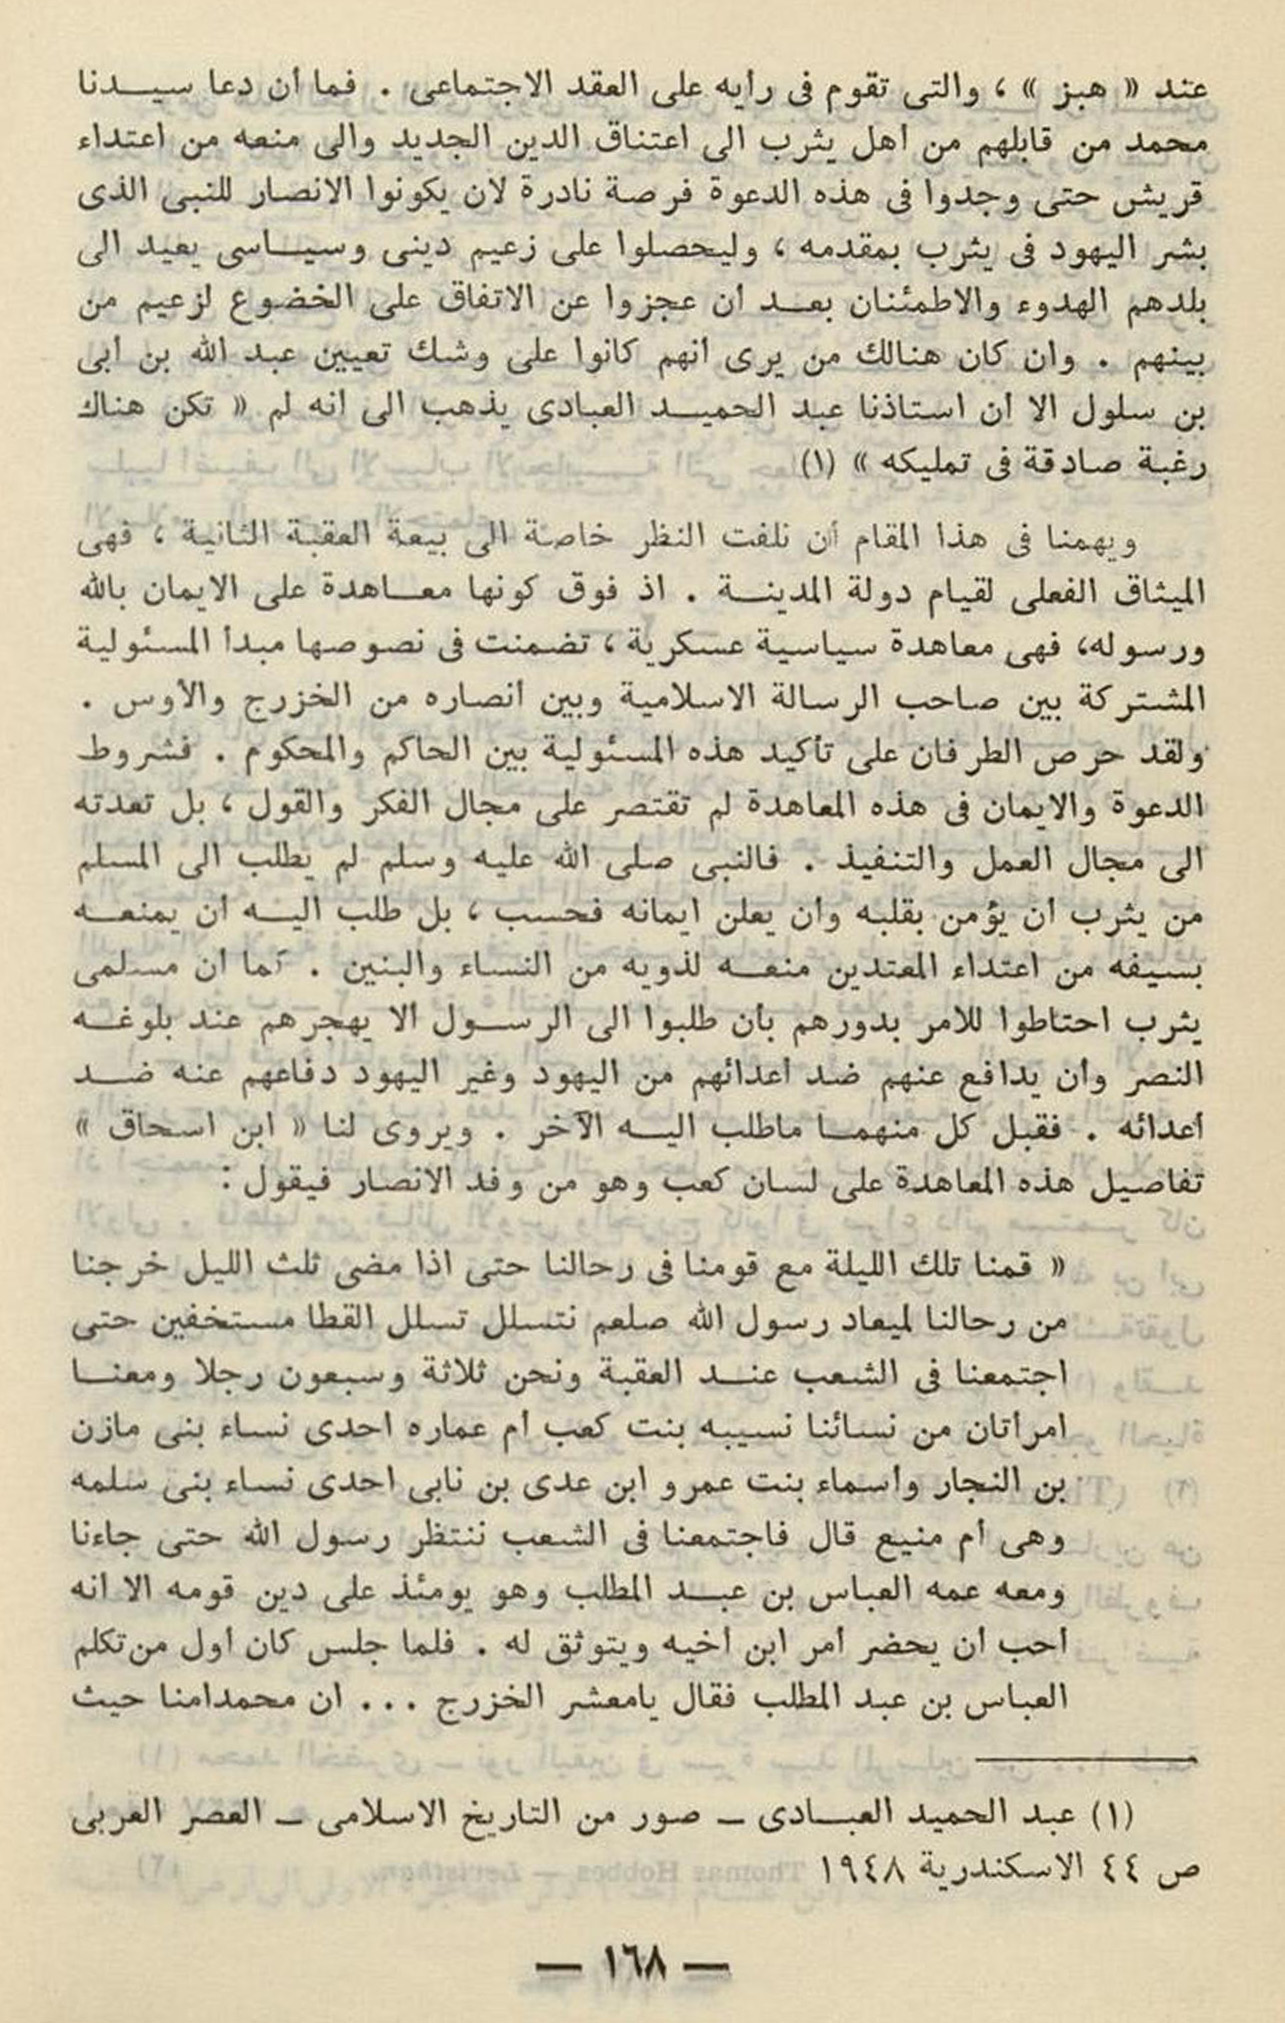 عند « هبز » ، والتى تقوم فى رأيه على العقد الاجتماعى . فما أن دعا سيدنا
محمد من قابلهم من أهل يثرب الى اعتناق الدين الجديد والى منعه من اعتداء
قريش حتى وجدوا فى هذه الدعوة فرصة نادرة لان يكونوا الانصار للنبى الذى
بشر اليهود فى يثرب بمقدمه ، وليحصلوا على زعيم دينى وسياسى يعيد الى
بلدهم الهدوء والاطمئنان بعد أن عجزوا عن الاتفاق على الخضوع لزعيم من
بينهم . وان كان هنالك من يرى انهم كانوا على وشك تعيين عبد الله بن أبى
بن سلول الا أن استاذنا عبد الحميد العبادى يذهب الى انه لم « تكن هناك
رغبة صادقة فى تمليكه » (١)
ويهمنا فى هذا المقام أن نلفت النظر خاصة الى بيعة العقبة الثانية ، فهى
الميثاق الفعلى لقيام دولة المدينة . اذ فوق كونها معاهدة على الايمان بالله
ورسوله، فهى معاهدة سياسية عسكرية ، تضمنت فى نصوصها مبدأ المسئولية
المشتركة بين صاحب الرسالة الاسلامية وبين أنصاره من الخزرج والأوس .
ولقد حرص الطرفان على تأكيد هذه المسئولية بين الحاكم والمحكوم . فشروط
الدعوة والايمان فى هذه المعاهدة لم تقتصر على مجال الفكر والقول ، بل تعدته
الى مجال العمل والتنفيذ . فالنبى صلى الله عليه وسلم لم يطلب الى المسلم
من يثرب أن يؤمن بقلبه وأن يعلن ايمانه فحسب ، بل طلب اليه أن يمنعه
بسيفه من اعتداء المعتدين منعه لذويه من النساء والبنين . كما ان مسلمى
يثرب احتاطوا للأمر بدورهم بأن طلبوا الى الرسول ألا يهجرهم عند بلوغه
النصر وأن يدافع عنهم ضد أعدائهم من اليهود وغير اليهود دفاعهم عنه ضد
أعدائه . فقبل كل منهما ماطلب اليه الآخر . ويروى لنا « ابن اسحاق »
تفاصيل هذه المعاهدة على لسان كعب وهو من وفد الانصار فيقول :
« قمنا تلك الليلة مع قومنا فى رحالنا حتى اذا مضى ثلث الليل خرجنا
من رحالنا لميعاد رسول الله صلعم نتسلل تسلل القطا مستخفين حتى
اجتمعنا فى الشعب عند العقبة ونحن ثلاثة وسبعون رجلا ومعنا
امرأتان من نسائنا نسيبه بنت كعب أم عماره احدى نساء بنى مازن
بن النجار وأسماء بنت عمرو ابن عدى بن نابى احدى نساء بنى سلمه
وهى أم منيع قال فاجتمعنا فى الشعب ننتظر رسول الله حتى جاءنا
ومعه عمه العباس بن عبد المطلب وهو يومئذ على دين قومه الا انه
أحب أن يحضر أمر ابن أخيه ويتوثق له . فلما جلس كان أول من تكلم
العباس بن عبد المطلب فقال يامعشر الخزرج ... ان محمدامنا حيث
(١) عبد الحميد العبادى ــ صور من التاريخ الاسلامى ــ العصر العربى
ص ٤٤ الاسكندرية ١٩٤٨
— ١٦٨ —